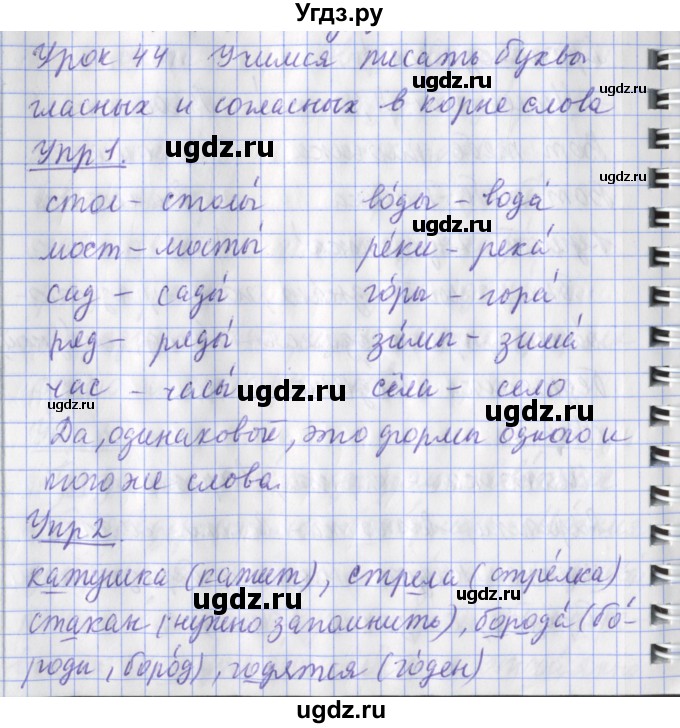 Угдз.ру
Урок 44 Учимся писать буквы
ugdz.ru
гласных и согласных в корне слова
Упр 1.
ugdz.ru
ugdz.ru
стол – столы́ во́ды – вода́
ugdz.ru
мост – мосты́ ре́ки – река́
сад – сады́ го́ры – гора́
ряд – ряды́ зи́мы – зима́
час – часы́ сёла – село
ugdz.ru
ugdz.ru
ugdz.ru
Да, одинаковой, это формы одного и
того же слова.
ugdz.ru
Упр 2
ugdz.ru
катушка (катит), стрела (стре́лка)
ugdz.ru
ugdz.ru
стакан (нужно запомнить), борода́ (бо́-
роды, боро́д), годятся (го́ден)
ugdz.ru
ugdz.ru